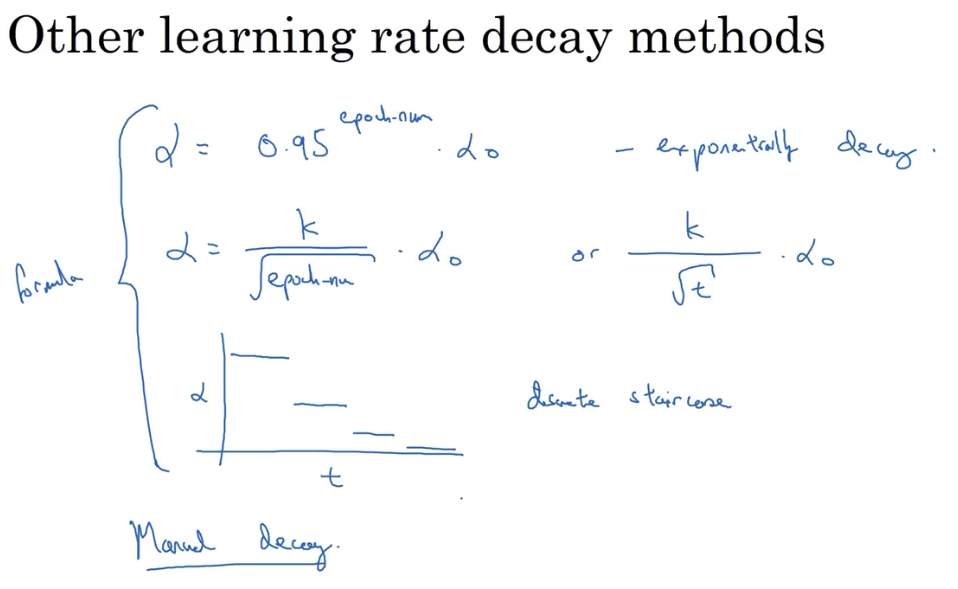 Other learning rate decay methods
α = 0.95^epoch-num · α₀ - exponentially decay.
formula
α = k/√epoch-nu · α₀ or k/√t · α₀
α
discrete staircase
t
Manual decay.